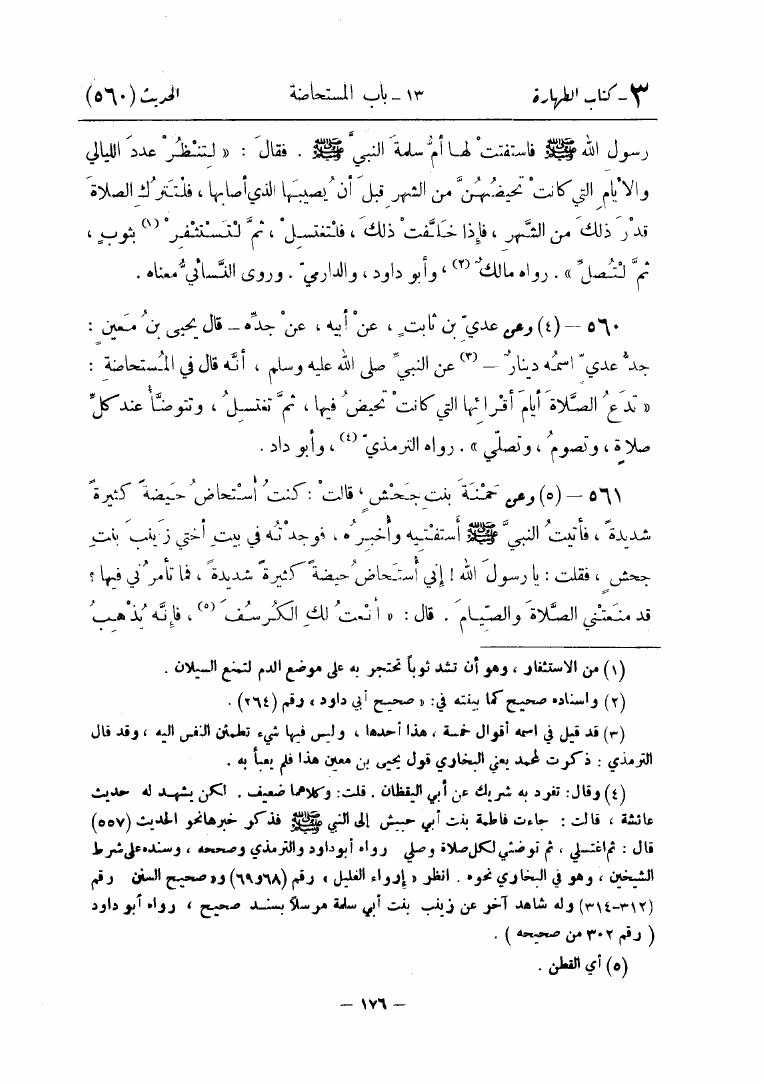 ٣ ـ كتاب الطهارة ١٣ ـ باب المستحاضة الحديث (٥٦٠)
رسول الله ﷺ فاستفتتْ لها أمُّ سلمةَ النبيَّ ﷺ . فقالَ : « لتنظُرْ عددَ الليالي
والأيامِ التي كانتْ تحيضُهُنَّ من الشهرِ قبلَ أن يُصيبَها الذي أصابها ، فلْتترُكِ الصلاةَ
قدْرَ ذلكَ من الشَّهر ، فإذا خلَّفتْ ذلكَ ، فلتغتسلْ ، ثمَّ لتَستثفِرْ (١) بثوبٍ ،
ثمَّ لتُصلِّ » . رواه مالكٌ (٢) ، وأبو داود ، والدارميّ . وروى النَّسائيُّ معناه .
٥٦٠ – (٤) وعن عديّ بن ثابتٍ ، عنْ أبيه ، عنْ جدِّه ـ قال يحيى بنُ مَعينٍ :
جدُّ عديّ اسمُه دينارٌ ـ (٣) عن النبيِّ صلى الله عليه وسلم ، أنَّه قال في المُستحاضة :
« تدَعُ الصَّلاةَ أيامَ أقرائِها التي كانتْ تحيضُ فيها ، ثمَّ تغتسلُ ، وتتوضَّأُ عندَ كلِّ
صلاةٍ ، وتصومُ ، وتصلّي » . رواه الترمذيّ (٤) ، وأبو داد .
٥٦١ – (٥) وعن حَمْنَةَ بنتِ جَحْشٍ ، قالتْ : كنتُ أُسْتحاضُ حَيضةً كثيرةً
شديدةً ، فأتيتُ النبيَّ ﷺ أَستفْتيهِ وأُخبِرُه ، فوجدْتُه في بيتِ أختي زَينبَ بنتِ
جحشٍ ، فقلت : يا رسولَ الله ! إني أُستَحاضُ حيضةً كثيرةً شديدةً ، فما تأمرُني فيها ؟
قد منعَتْني الصَّلاةَ والصِّيامَ . قال : « أنْعتُ لكِ الكُرسُفَ (٥) ، فإنَّه يُذْهبُ
(١) من الاستثفار ، وهو أن تشد ثوباً تحتجر به على موضع الدم لتمنع السيلان .
(٢) واسناده صحيح كما بينته في : « صحيح أبي داود » رقم (٢٦٤) .
(٣) قد قيل في اسمه أقوال خمسة ، هذا أحدها ، وليس فيها شيء تطمئن النفس اليه ، وقد قال
الترمذي : ذكرت لمحمد يعني البخاري قول يحيى بن معين هذا فلم يعبأ به .
(٤) وقال : تفرد به شريك عن أبي اليقظان . قلت : وكلاهما ضعيف . لكن يشهد له حديث
عائشة ، قالت : جاءت فاطمة بنت أبي حبيش إلى النبي ﷺ فذكر خبرها نحو الحديث (٥٥٧)
قال : ثم اغتسلي ، ثم توضئي لكل صلاة وصلي رواه أبو داود والترمذي وصححه ، وسنده على شرط
الشيخين ، وهو في البخاري نحوه . انظر « إرواء الغليل » رقم (٦٨و٦٩) و« صحيح السنن رقم
(٣١٢-٣١٤) وله شاهد آخر عن زينب بنت أبي سلمة مرسلاً بسند صحيح ، رواه أبو داود
( رقم ٣٠٢ من صحيحه ) .
(٥) أي القطن .
– ١٧٦ –